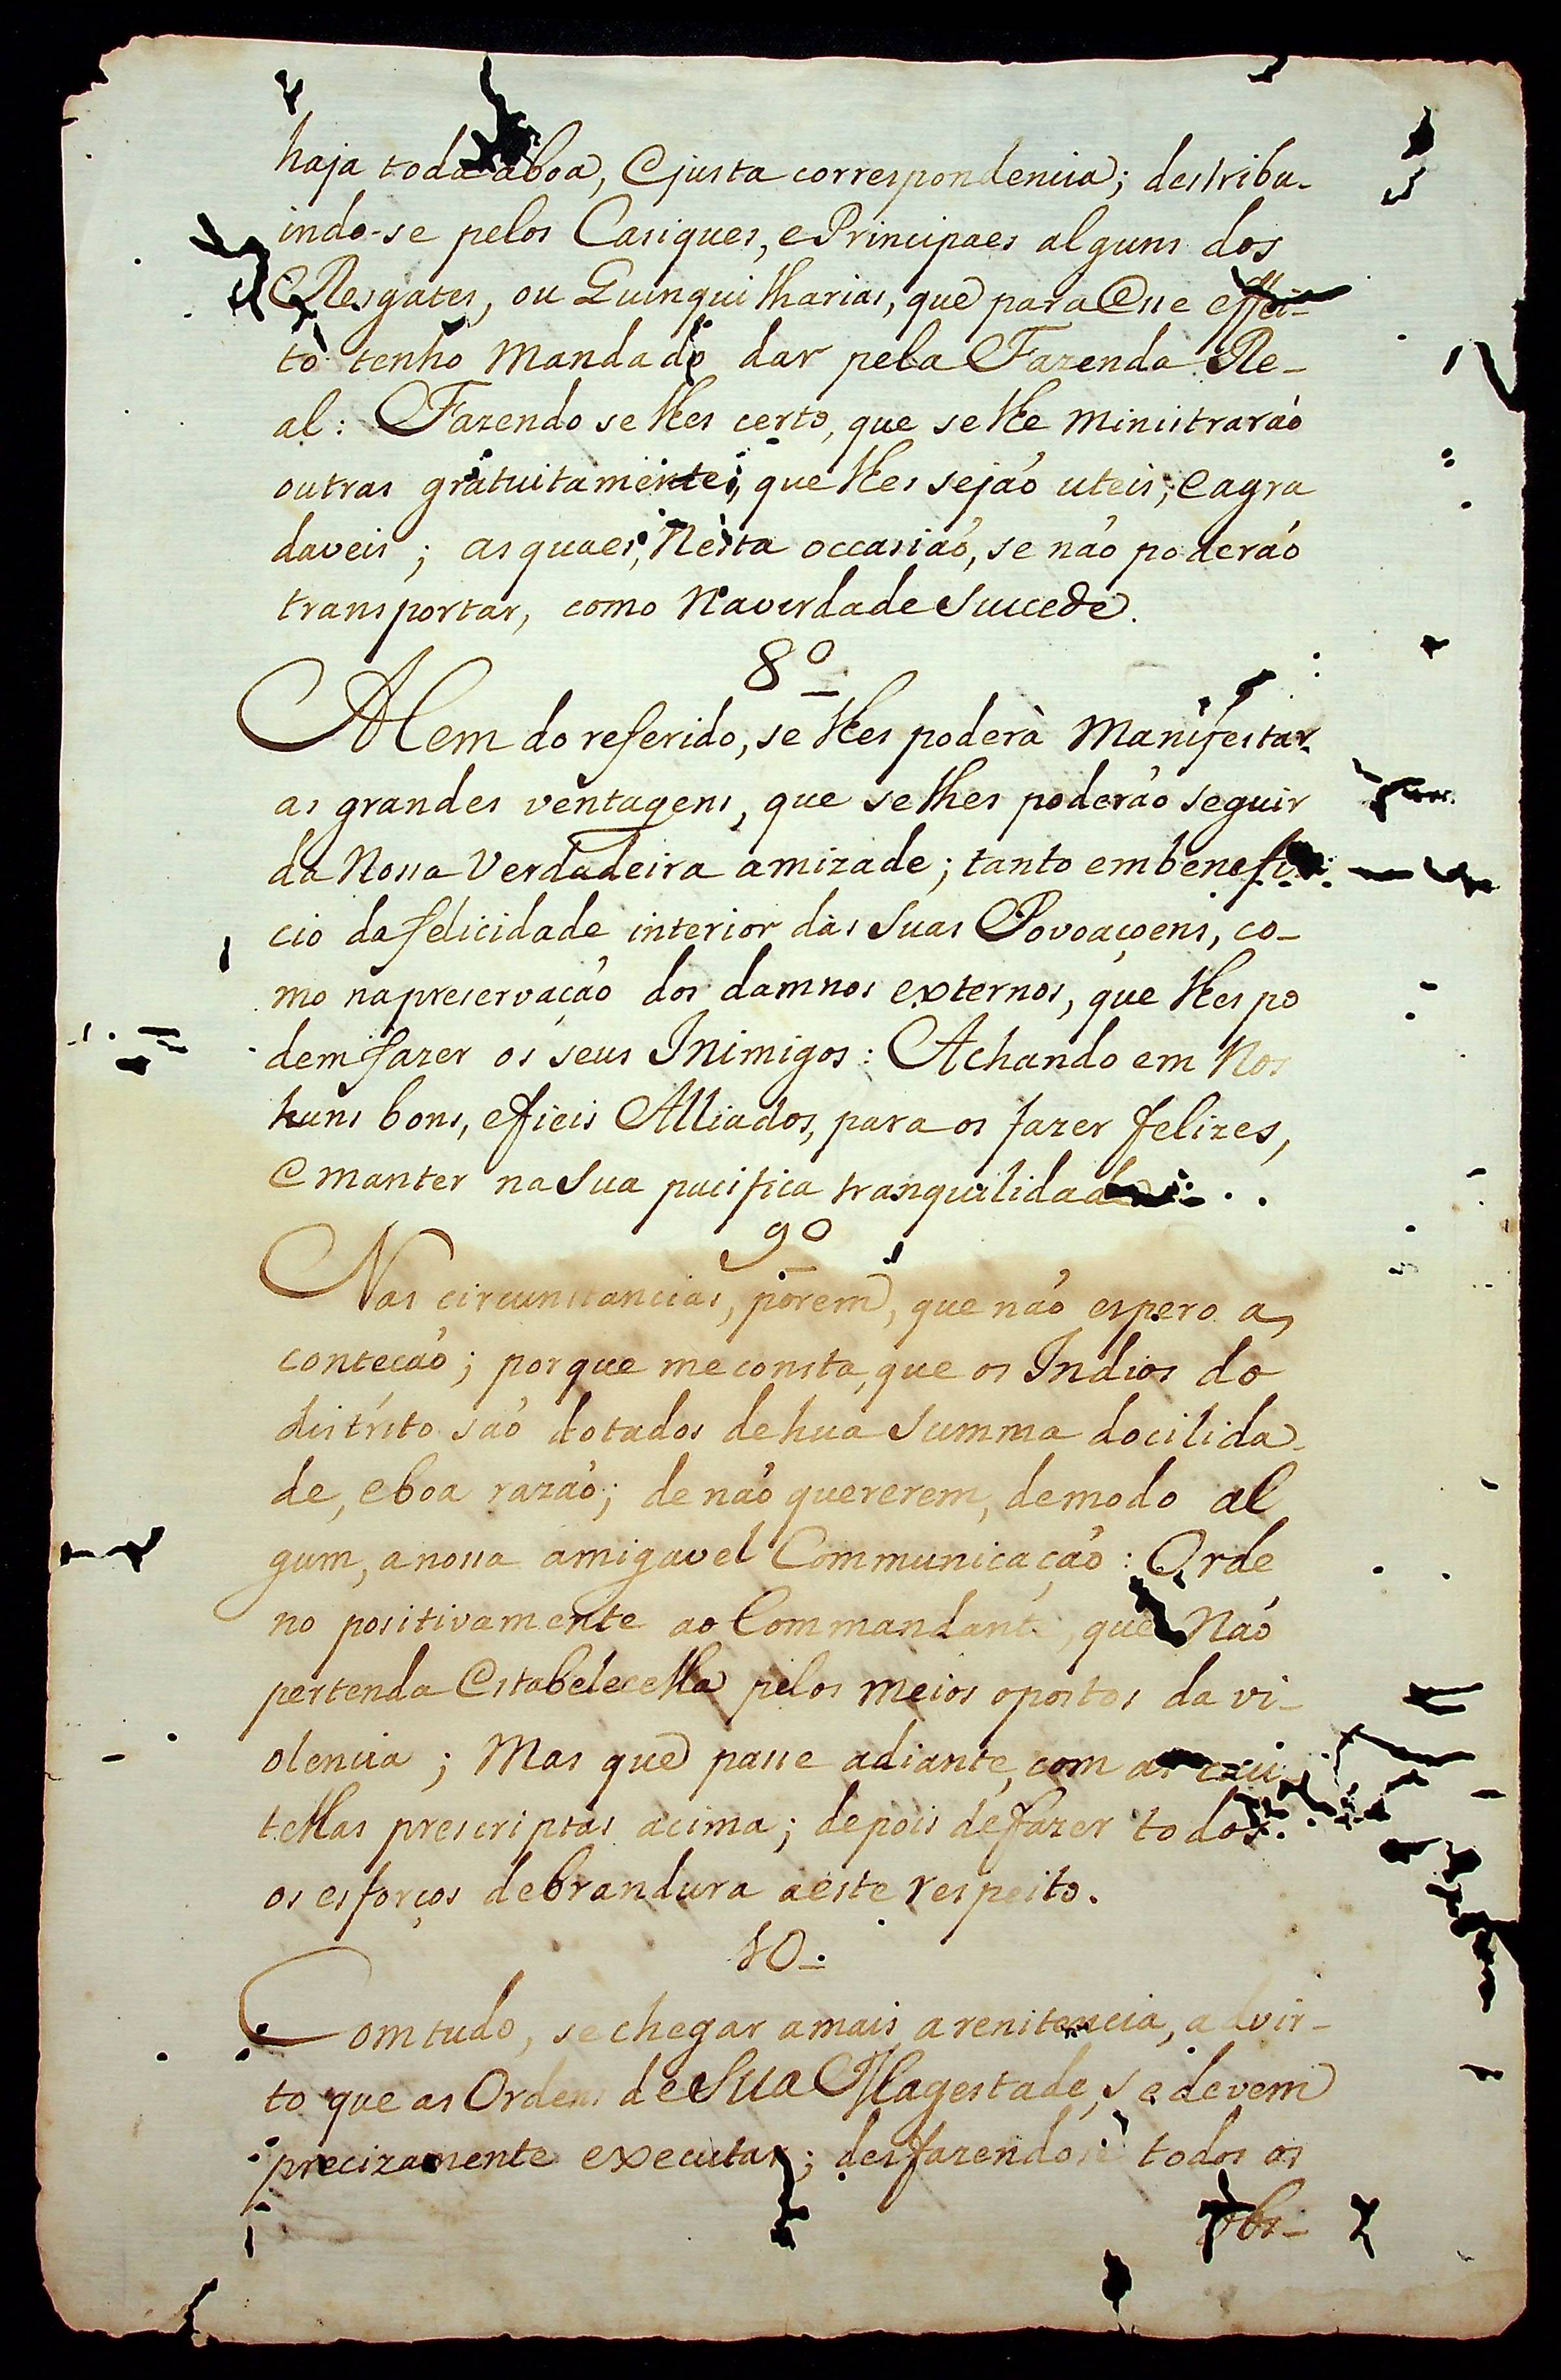 haja toda aboa, e justa correspondencia; destribu-
indo-se pelos Casiques, e Principaes alguns dos
Resgates, ou Quinquilharias, que para esse effei-
to tenho mandado dar pela Fazenda Re-
al: Fazendo selhes certo, que selhe ministraráõ
outras gratuitamente, que lhes sejaõ uteis, e agra
daveis; as quaes, nesta occasiaõ, se naõ poderáõ
transportar, como na verdade succede.
8º
Alem do referido, se lhes poderà manifestar
as grandes ventagens, que selhes poderáõ seguir
da nossa verdadeira amizade; tanto em benefi
cio da felicidade interior das suas Povoaçoens, co-
mo na preservaçaõ dos damnos externos, que lhes po
dem fazer os seus Inimigos: Achando em nos
huns bons, e fieis Alliados, para os fazer felizes,
e manter na sua pacifica tranquilidade
9º
Nas circunstancias, porem, que naõ espero a
conteçaõ; porque me consta, que os Indios do
distrito saõ dotados de hua summa docilida-
de, e boa razaõ; de naõ quererem, de modo al
gum, a nossa amigavel Communicaçaõ: Orde
no positivamente ao Commandante, que naõ
pertenda estabelecella pelos meios opostos da vi-
olencia; mas que passe adiante, com as cau
tellas prescriptas acima; depois de fazer todos
os esforços de brandura a este respeito.
10.
Comtudo, se chegar a mais a renitencia, advir-
to que as Ordens de Sua Magestade, se devem
precizamente executar; desfazendose todos os
obs-